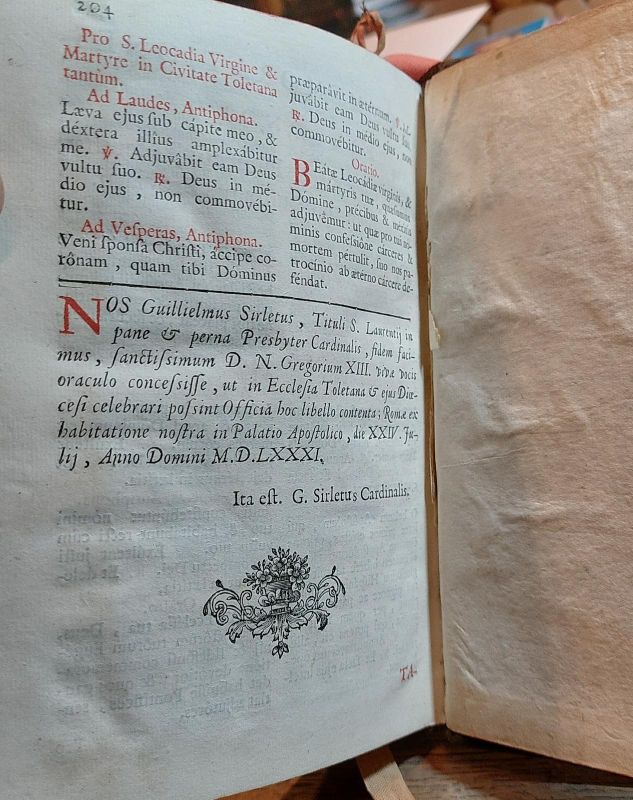 204
Pro S. Leocadia Virgine &
Martyre in Civitate Toletana
tantùm.
Ad Laudes, Antiphona.
Læva ejus ſub cápite meo, &
déxtera illíus amplexábitur
me. ℣. Adjuvâbit eam Deus
vultu ſuo. ℟. Deus in mé-
dio ejus, non commovébi-
tur.
Ad Veſperas, Antiphona.
Veni ſponſa Chriſti, áccipe co-
rônam, quam tibi Dóminus
præparâvit in ætérnum. ℣. Ad-
juvâbit eam Deus vultu ſuo.
℟. Deus in médio ejus, non
commovébitur.
Oratio.
BEátæ Leocádiæ vírginis, &
mártyris tuæ, quæſumus
Dómine, précibus & méritis
adjuvêmur: ut quæ pro tui nó-
minis confeſſióne cárceres &
mortem pértulit, ſuo nos pa-
trocínio ab ætérno cárcere de-
féndat.
NOS Guillielmus Sirletus, Tituli S. Laurentij in
pane & perna Presbyter Cardinalis, fidem faci-
mus, ſanctiſſimum D. N. Gregorium XIII. vivæ vocis
oraculo conceſſiſſe, ut in Eccleſia Toletana & ejus Diœ-
ceſi celebrari poſsint Officia hoc libello contenta; Romæ ex
habitatione noſtra in Palatio Apoſtolico, die XXIV. Ju-
lij, Anno Domini M.D.LXXXI.
Ita eſt. G. Sirletus Cardinalis.
TA-